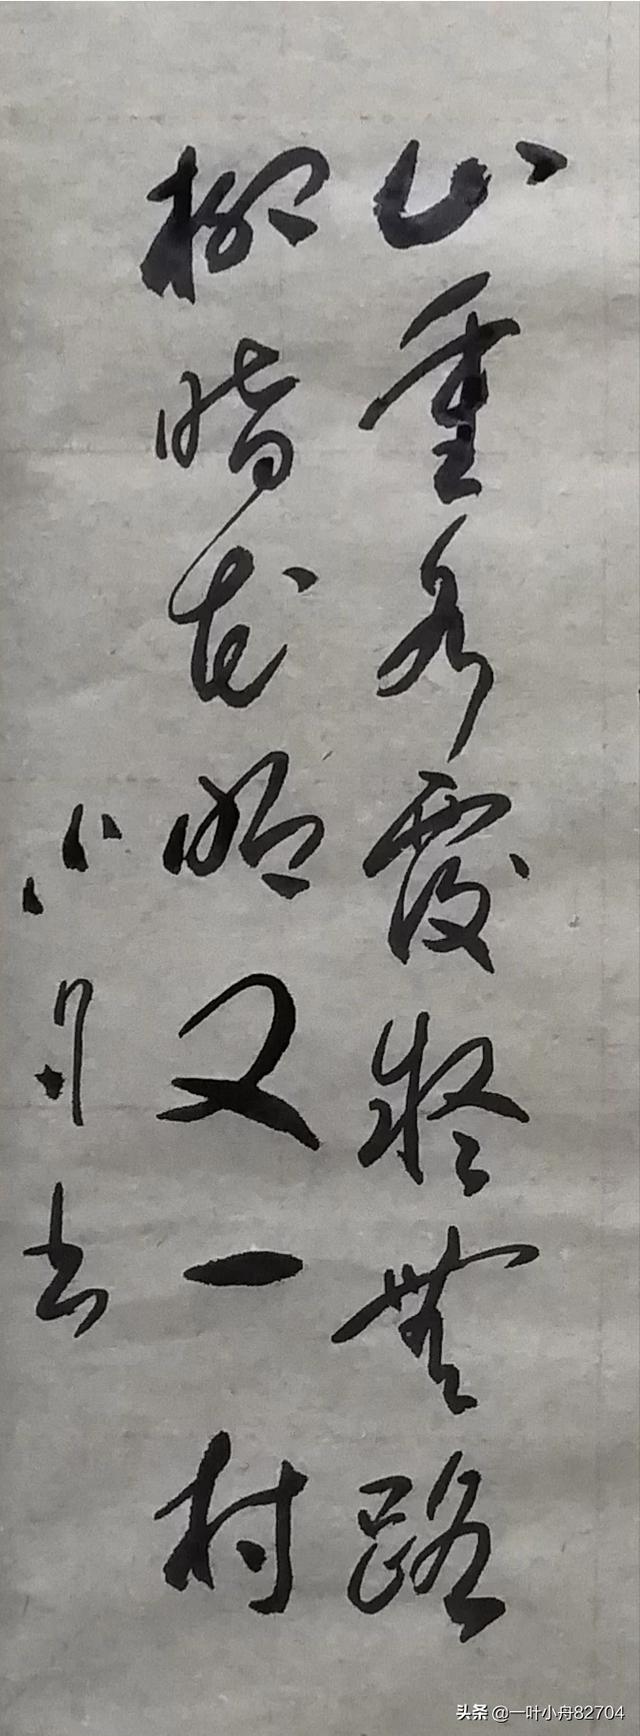 山重水覆疑無路
柳暗花明又一村
小舟书
头条 @一叶小舟82704